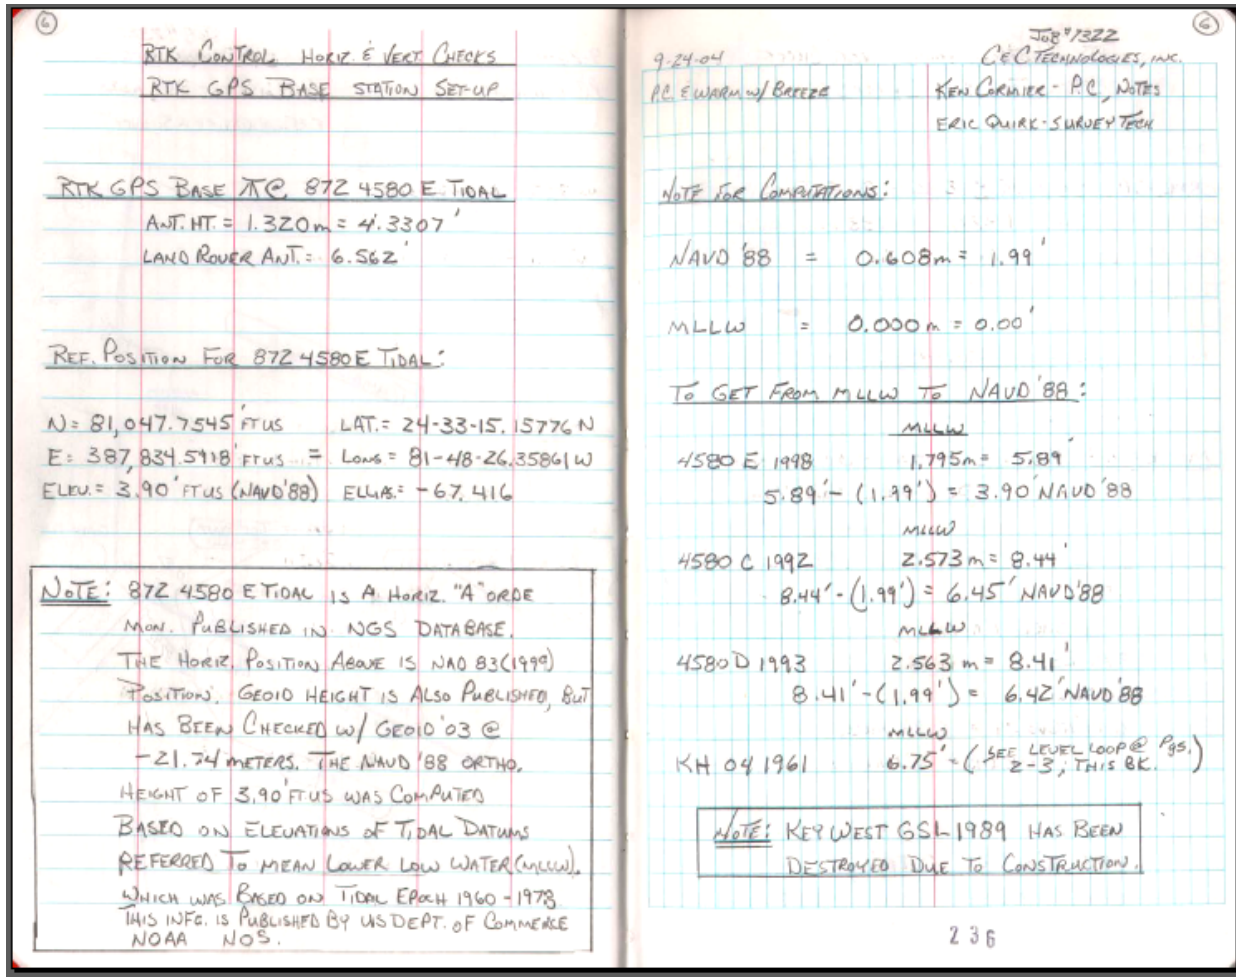 6
RTK CONTROL HORIZ. & VERT CHECKS
RTK GPS BASE STATION SET-UP
RTK GPS BASE @ 872 4580 E TIDAL
ANT. HT. = 1.320m = 4.3307'
LAND ROVER ANT. = 6.562'
REF. POSITION FOR 872 4580 E TIDAL:
N = 81,047.7545' FTUS LAT. = 24-33-15.15776 N
E = 387,834.5418' FTUS = LONG = 81-48-26.35861 W
ELEV. = 3.90' FTUS (NAVD'88) ELLIP. = -67.416
NOTE: 872 4580 E TIDAL IS A HORIZ. "A" ORDE
MON. PUBLISHED IN NGS DATABASE.
THE HORIZ. POSITION ABOVE IS NAD 83(1999)
POSITION. GEOID HEIGHT IS ALSO PUBLISHED, BUT
HAS BEEN CHECKED W/ GEOID '03 @
-21.74 METERS. THE NAVD '88 ORTHO.
HEIGHT OF 3.90' FTUS WAS COMPUTED
BASED ON ELEVATIONS OF TIDAL DATUMS
REFERRED TO MEAN LOWER LOW WATER (MLLW),
WHICH WAS BASED ON TIDAL EPOCH 1960-1978
THIS INFO. IS PUBLISHED BY US DEPT. OF COMMERCE
NOAA NOS.
6
JOB #1322
9-24-04 C & C TECHNOLOGIES, INC.
P.C. & WARM W/ BREEZE KEN CORMIER - P.C., NOTES
ERIC QUIRK - SURVEY TECH
NOTE FOR COMPUTATIONS:
NAVD '88 = 0.608m = 1.99'
MLLW = 0.000m = 0.00'
TO GET FROM MLLW TO NAVD '88:
MLLW
4580 E 1998 1.795m = 5.89'
5.89' - (1.99') = 3.90' NAVD'88
MLLW
4580 C 1992 2.573m = 8.44'
8.44' - (1.99') = 6.45' NAVD'88
MLLW
4580 D 1993 2.563m = 8.41'
8.41' - (1.99') = 6.42' NAVD'88
MLLW
KH 04 1961 6.75' - (SEE LEVEL LOOP @ Pgs. 2-3, THIS BK.)
NOTE: KEY WEST GSL 1989 HAS BEEN
DESTROYED DUE TO CONSTRUCTION.
236